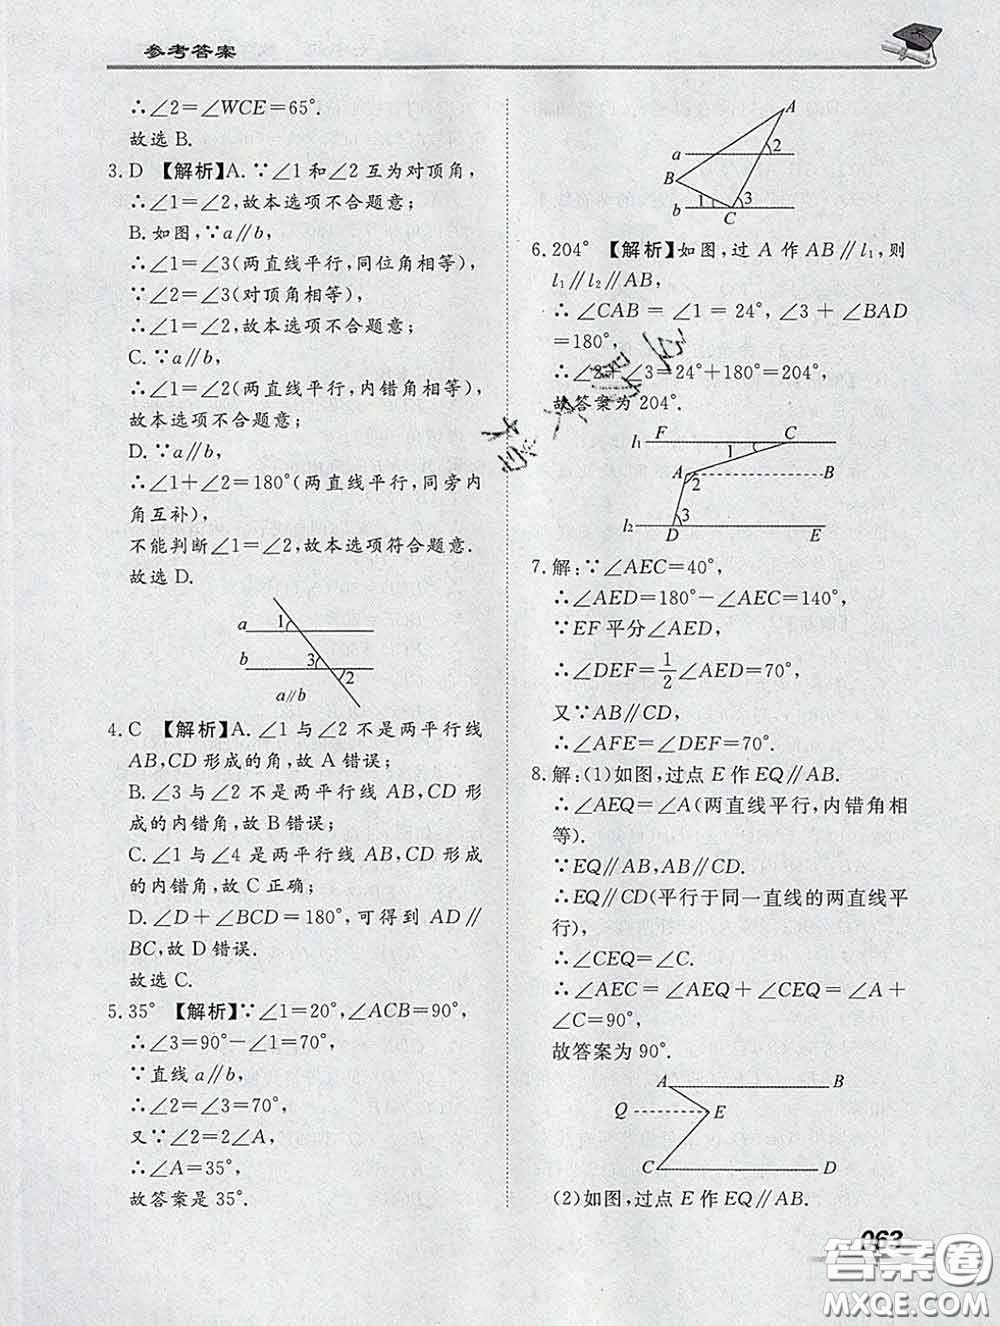 参考答案
∴∠2=∠WCE=65°.
故选 B.
3. D 【解析】A. ∵∠1 和∠2 互为对顶角，
∴∠1=∠2，故本选项不合题意；
B. 如图，∵a∥b，
∴∠1=∠3(两直线平行，同位角相等)，
∵∠2=∠3(对顶角相等)，
∴∠1=∠2，故本选项不合题意；
C. ∵a∥b，
∴∠1=∠2(两直线平行，内错角相等)，
故本选项不合题意；
D. ∵a∥b，
∴∠1+∠2=180°(两直线平行，同旁内
角互补)，
不能判断∠1=∠2，故本选项符合题意.
故选 D.
a 1
b 3 2
a∥b
4. C 【解析】A. ∠1 与∠2 不是两平行线
AB,CD 形成的角，故 A 错误；
B. ∠3 与∠2 不是两平行线 AB,CD 形
成的内错角，故 B 错误；
C. ∠1 与∠4 是两平行线 AB,CD 形成
的内错角，故 C 正确；
D. ∠D+∠BCD=180°，可得到 AD∥
BC，故 D 错误.
故选 C.
5. 35° 【解析】∵∠1=20°，∠ACB=90°，
∴∠3=90°-∠1=70°，
∵直线 a∥b，
∴∠2=∠3=70°，
又∵∠2=2∠A，
∴∠A=35°，
故答案是 35°.
A
a 2
B
b 1 3
C
6. 204° 【解析】如图，过 A 作 AB∥l₁，则
l₁∥l₂∥AB，
∴∠CAB=∠1=24°，∠3+∠BAD
=180°，
∴∠2+∠3=24°+180°=204°，
故答案为 204°.
l₁ F C
1
A 2 B
3
l₂ D E
7. 解：∵∠AEC=40°，
∴∠AED=180°-∠AEC=140°，
∵EF 平分∠AED，
∴∠DEF=1/2∠AED=70°，
又∵AB∥CD，
∴∠AFE=∠DEF=70°.
8. 解：(1)如图，过点 E 作 EQ∥AB.
∴∠AEQ=∠A(两直线平行，内错角相
等).
∵EQ∥AB,AB∥CD.
∴EQ∥CD(平行于同一直线的两直线平
行)，
∴∠CEQ=∠C.
∴∠AEC=∠AEQ+∠CEQ=∠A+
∠C=90°，
故答案为 90°.
A B
Q E
C D
(2)如图，过点 E 作 EQ∥AB.
063
答案圈
MXQE.COM